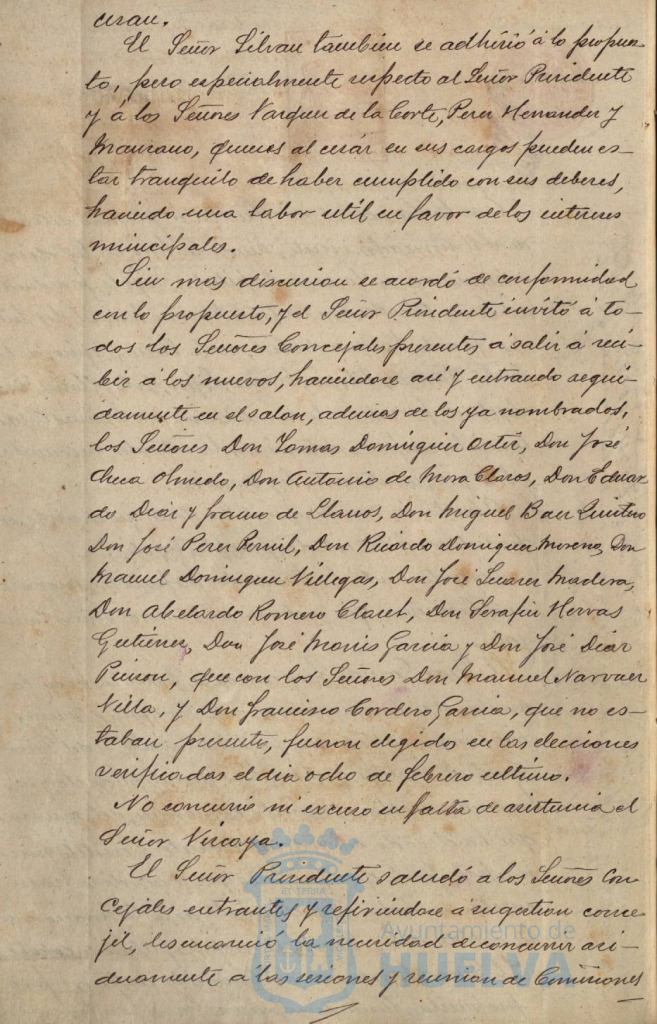 cesan.
El Señor Silvan tambien se adhirió á lo propues
to, pero especialmente respecto al Señor Presidente
y á los Señores Vazquez de la Corte, Perez Hernandez y
Manzano, quienes al cesár en sus cargos pueden es-
tar tranquilo de haber cumplido con sus deberes,
haciendo una labor util en favor de los intereses
municipales.
Sin mas discusion se acordó de conformidad
con lo propuesto, y el Señor Presidente invitó á to-
dos los Señores Concejales presentes á salir á reci-
bir á los nuevos, haciendose asi y entrando segui-
damente en el salon, ademas de los ya nombrados,
los Señores Don Tomas Dominguez Ortiz, Don José
Checa Olmedo, Don Antonio de Mora Claros, Don Eduar
do Diaz y Franco de Llanos, Don Miguel Baez Quintero
Don José Perez Pernil, Don Ricardo Dominguez Moreno, Don
Manuel Dominguez Villegas, Don José Suarez Madera,
Don Abelardo Romero Claret, Don Serafin Hervas
Gutierrez, Don José Monis Garcia y Don José Diaz
Pinzon, que con los Señores Don Manuel Narvaez
Villa, y Don Francisco Cordero Garcia, que no es-
taban presente, fueron elegidos en las elecciones
verificadas el dia ocho de febrero ultimo.
No concurrió ni excuso su falta de asistencia el
Señor Vizcaya.
El Señor Presidente saludó a los Señores Con
cejales entrantes y refiriendose á su gestion conce-
jil, les enunció la necesidad de concurrir asi-
duamente á las sesiones y reunion de Comisiones
Ayuntamiento de
HUELVA